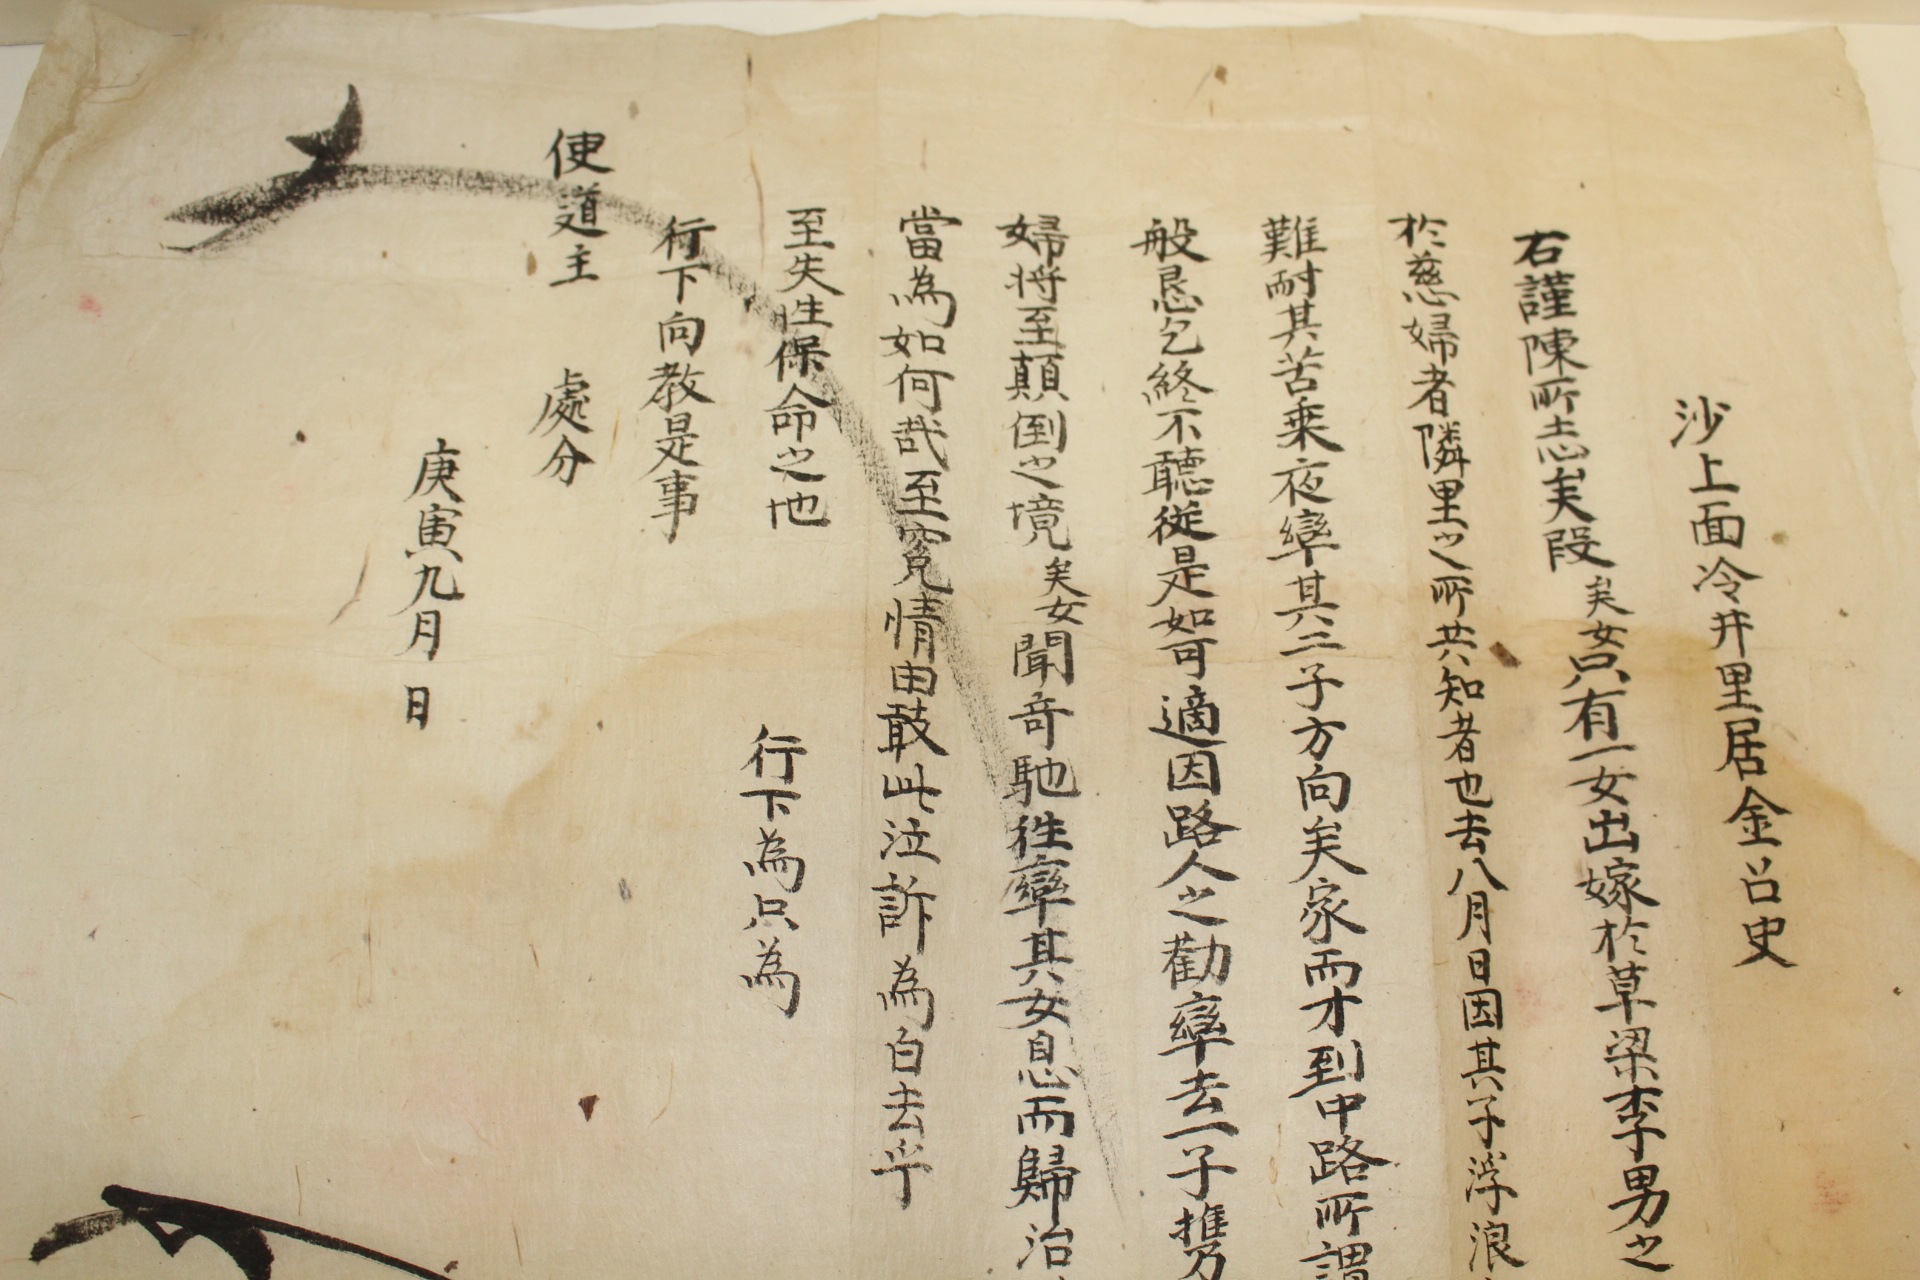 沙上面冷井里居金召史
右謹陳所志矣段矣女只有一女出嫁於草梁李男之
於慈婦者隣里之所共知者也去八月日因其子浮浪
難耐其苦乗夜率其二子方向矣家而才到中路所謂
般恳乞終不聽従是如可適因路人之勸率去一子携
婦将至顛倒之境矣女聞奇馳徃率其女息而歸治
當為如何哉至寃情由敢此泣訴為白去乎
至失性保命之地行下為只為
行下向教是事
使道主處分
庚寅九月日